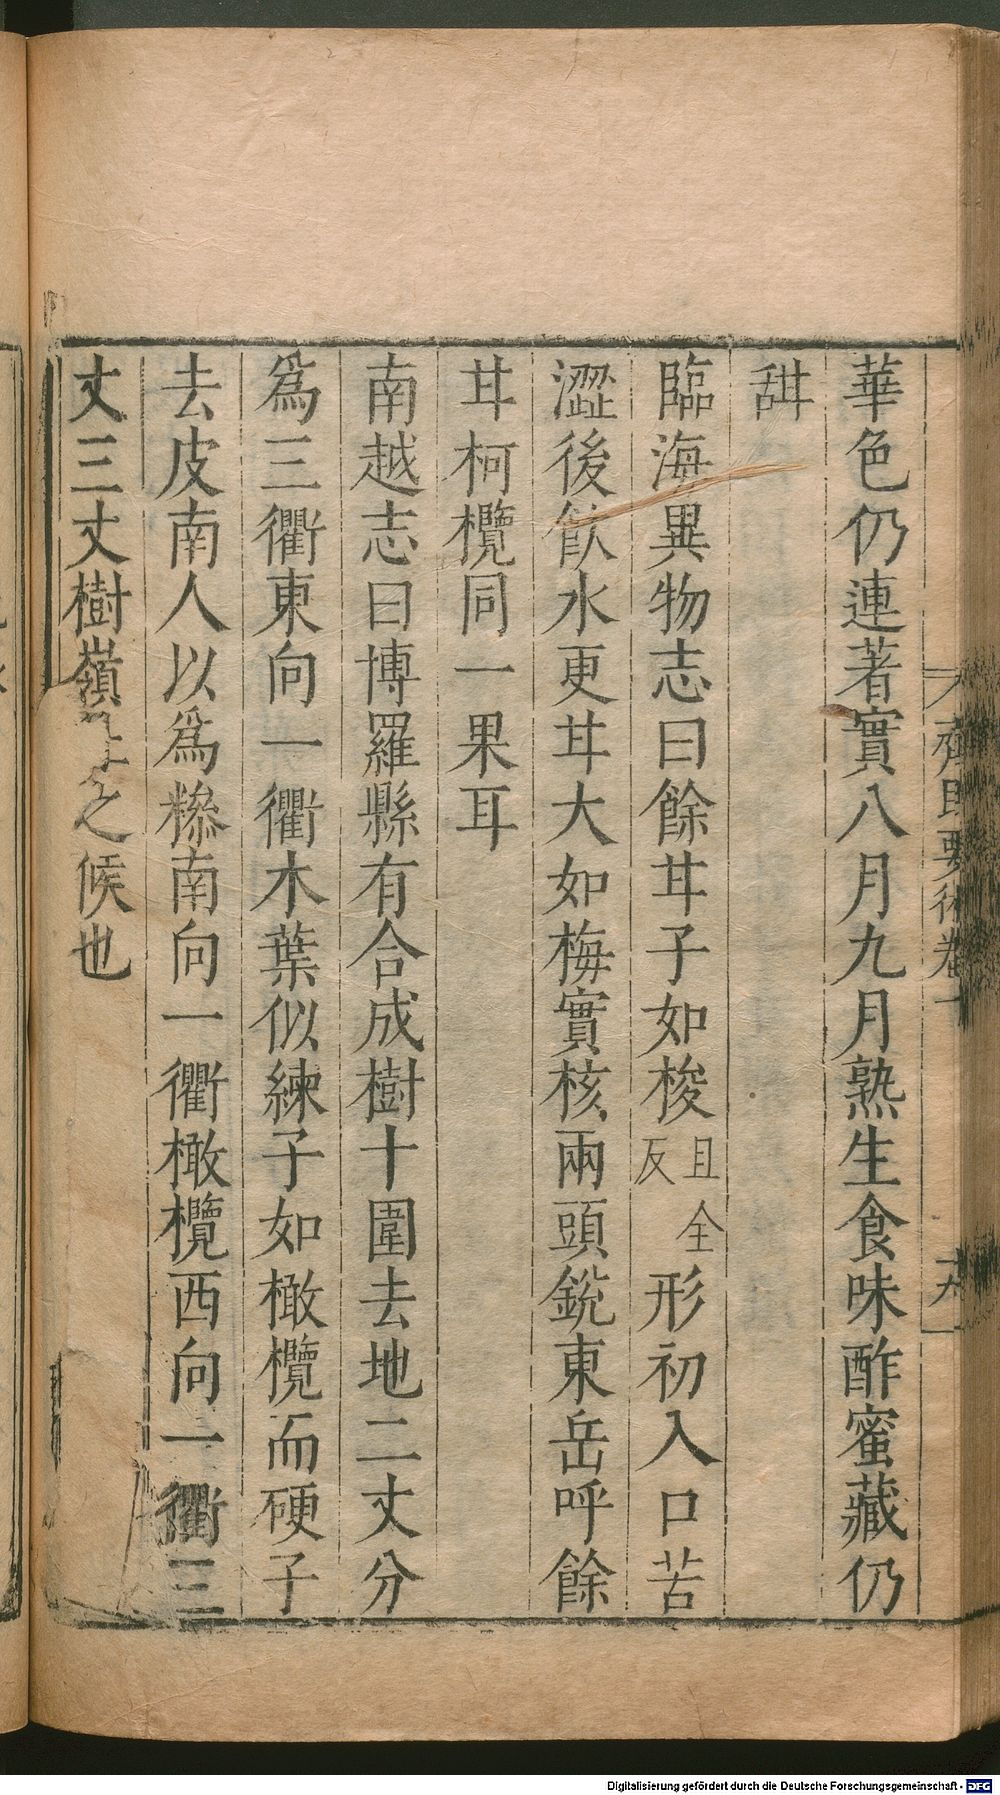 齊民要術卷十
華色仍連著實八月九月熟生食味酢蜜藏仍
甜
臨海異物志曰餘甘子如梭且全反形初入口苦
澀後飲水更甘大如梅實核兩頭銳東岳呼餘
甘柯欖同一果耳
南越志曰博羅縣有合成樹十圍去地二丈分
為三衢東向一衢木葉似練子如橄欖而硬子
去皮南人以為糝南向一衢橄欖西向一衢三
丈三丈樹嶺之候也
Digitalisierung gefördert durch die Deutsche Forschungsgemeinschaft - DFG